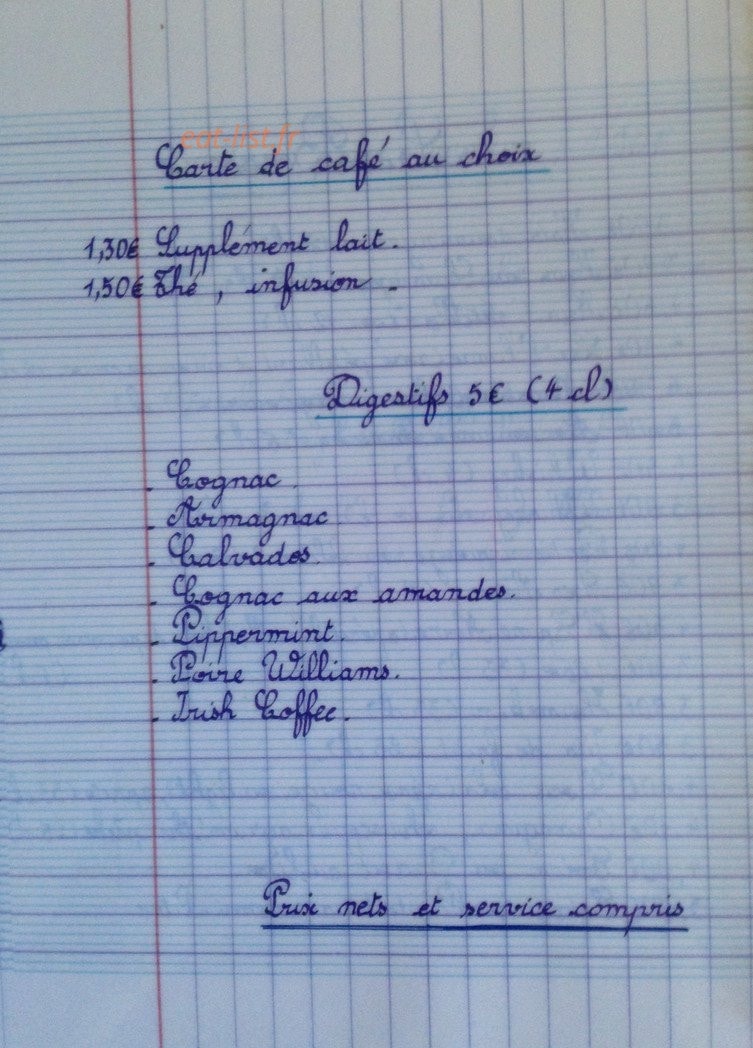 eat-list.fr
Carte de café au choix
1,30€ Supplément lait.
1,50€ Thé, infusion.
Digestifs 5€ (4 cl)
. Cognac.
. Armagnac
. Calvados.
. Cognac aux amandes.
. Pippermint.
. Poire Williams.
. Irish Coffee.
Prix nets et service compris